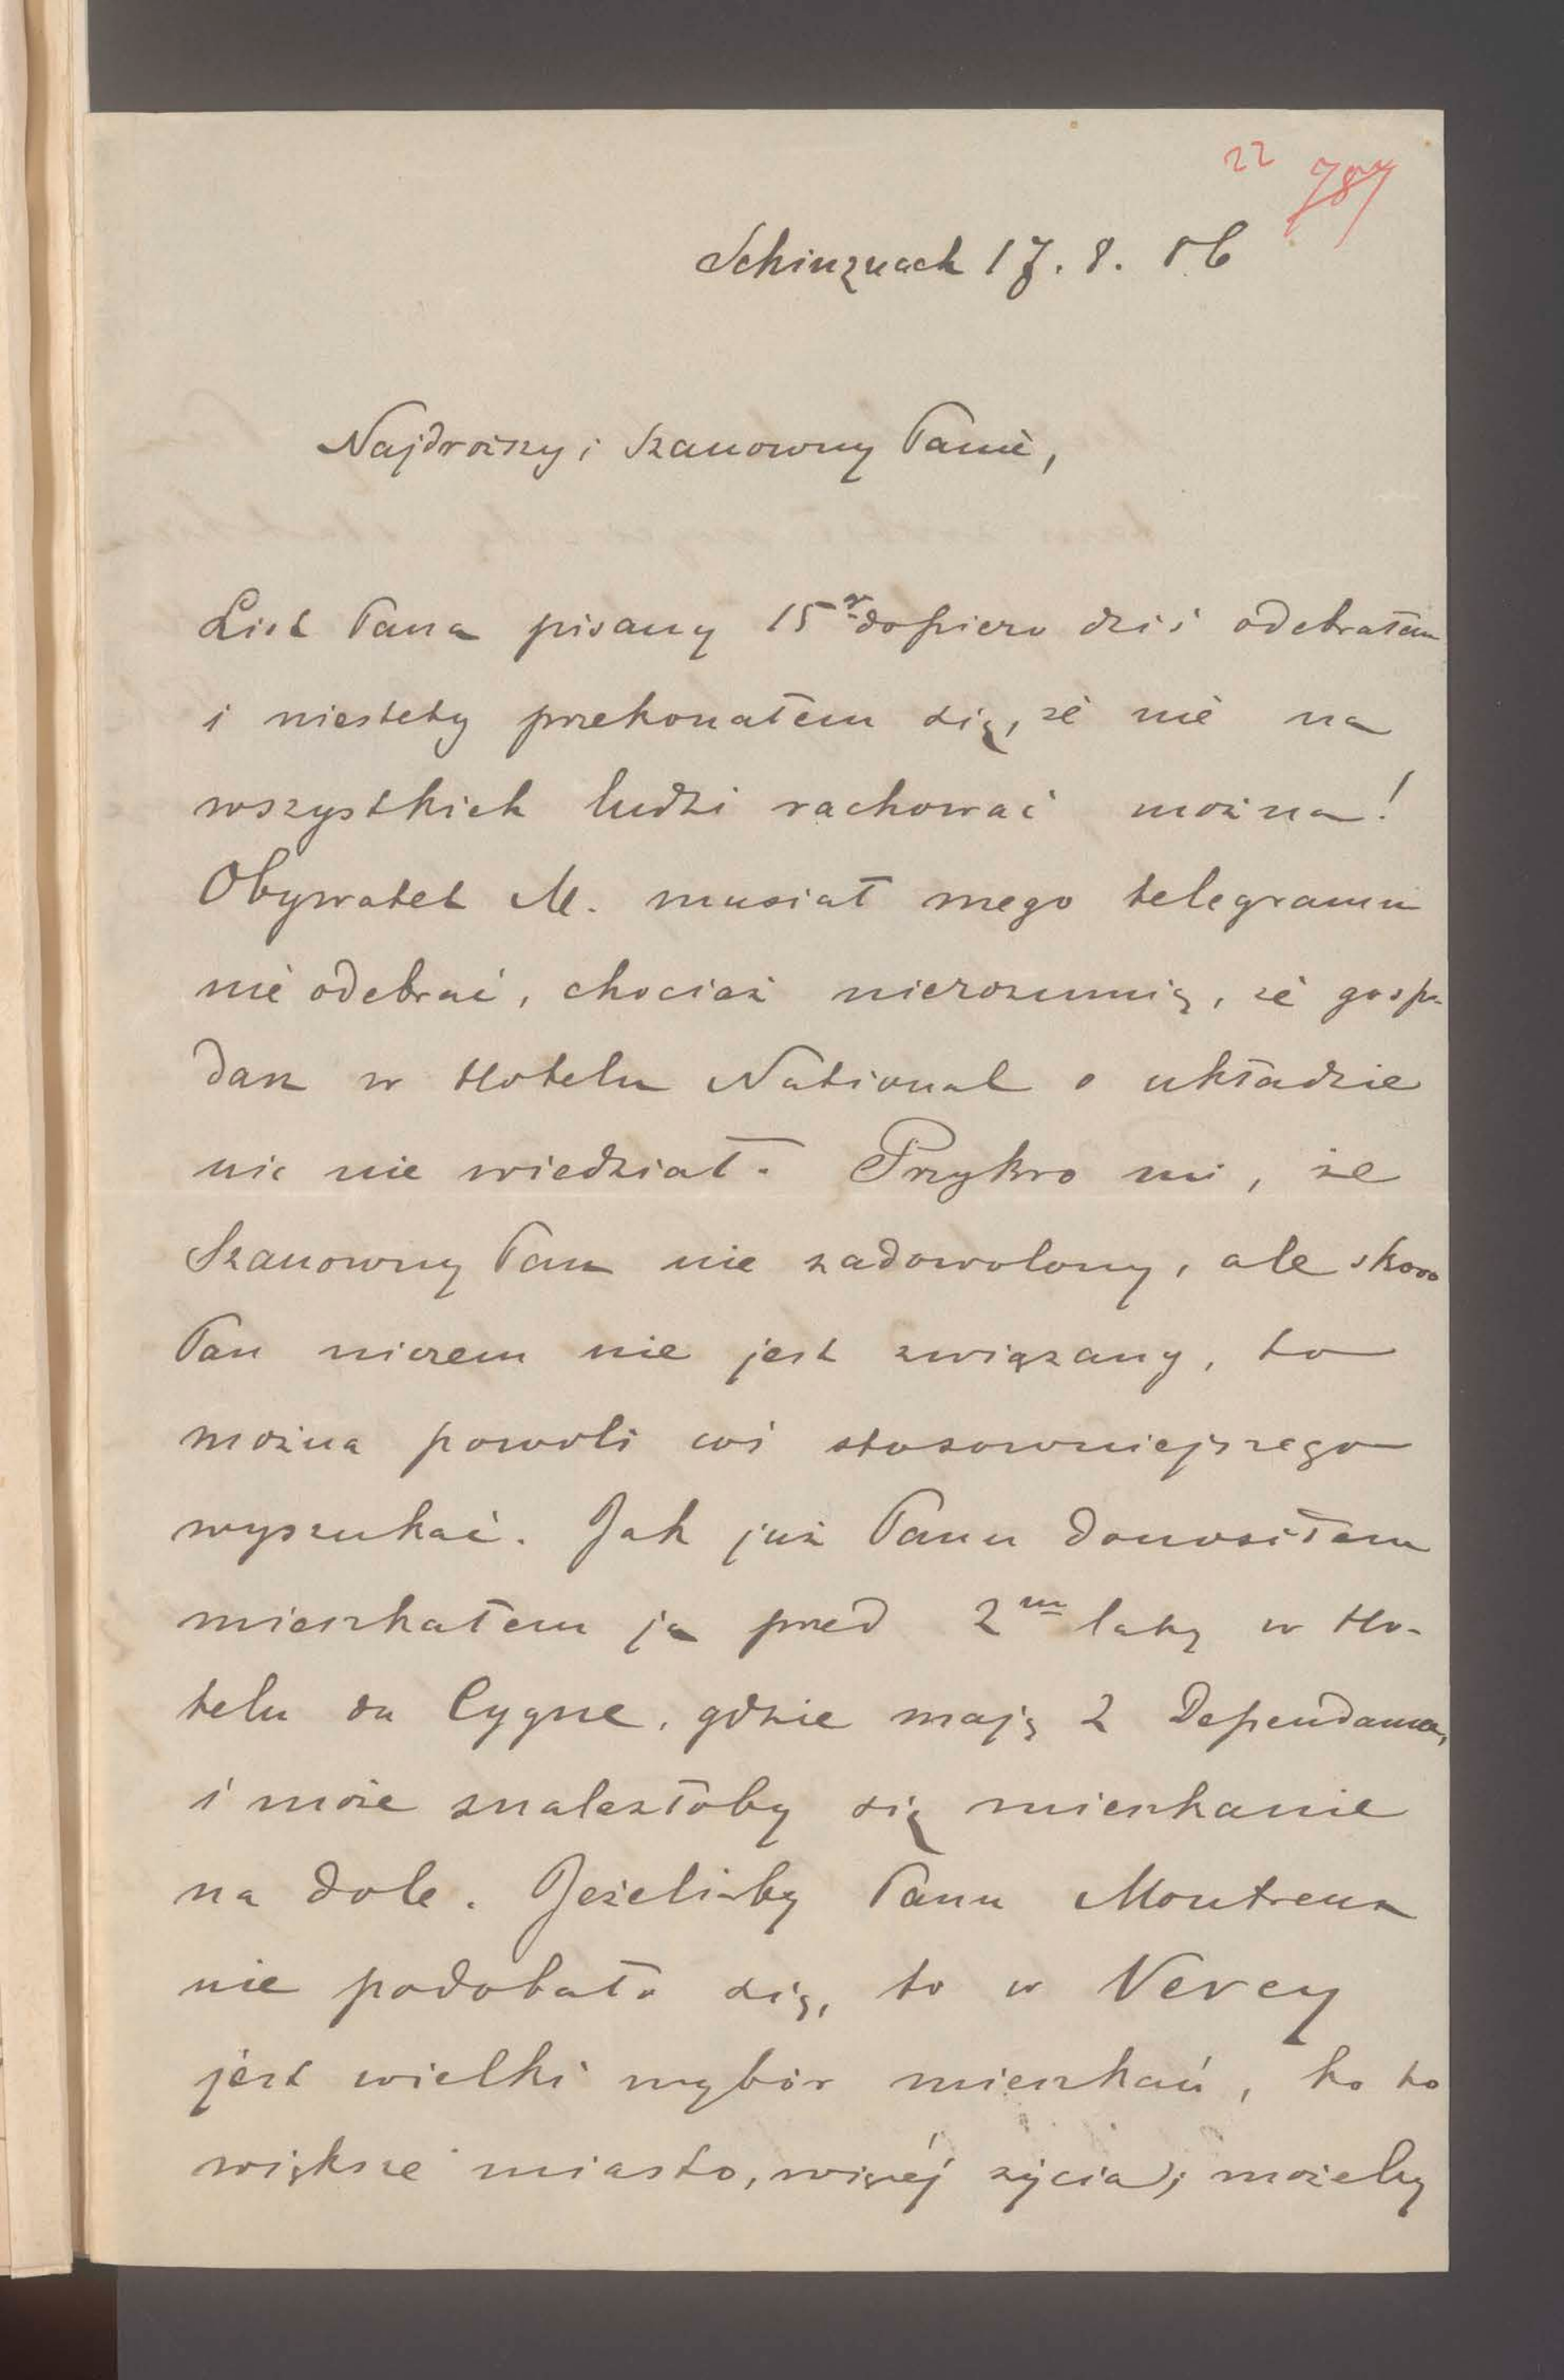 22 787
Schinznach 17. 8. 86
Najdroższy i Szanowny Panie,
List Pana pisany 15 dopiero dziś odebrałem
i niestety przekonałem się, że nie na
wszystkich ludzi rachować można!
Obywatel M. musiał mego telegramu
nie odebrać, chociaż nierozumię, że gospo-
darz w Hotelu National o układzie
nic nie wiedział. Przykro mi, że
Szanowny Pan nie zadowolony, ale skoro
Pan niczem nie jest związany, to
można powoli coś stosowniejszego
wyszukać. Jak już Panu donosiłem
mieszkałem ja przed 2ma laty w Ho-
telu du Cygne, gdzie mają 2 Dependance,
i może znalazłoby się mieszkanie
na dole. Jeżeliby Panu Montreux
nie podobało się, to w Vevey
jest wielki wybór mieszkań, bo to
większe miasto, więcéj życia; możeby